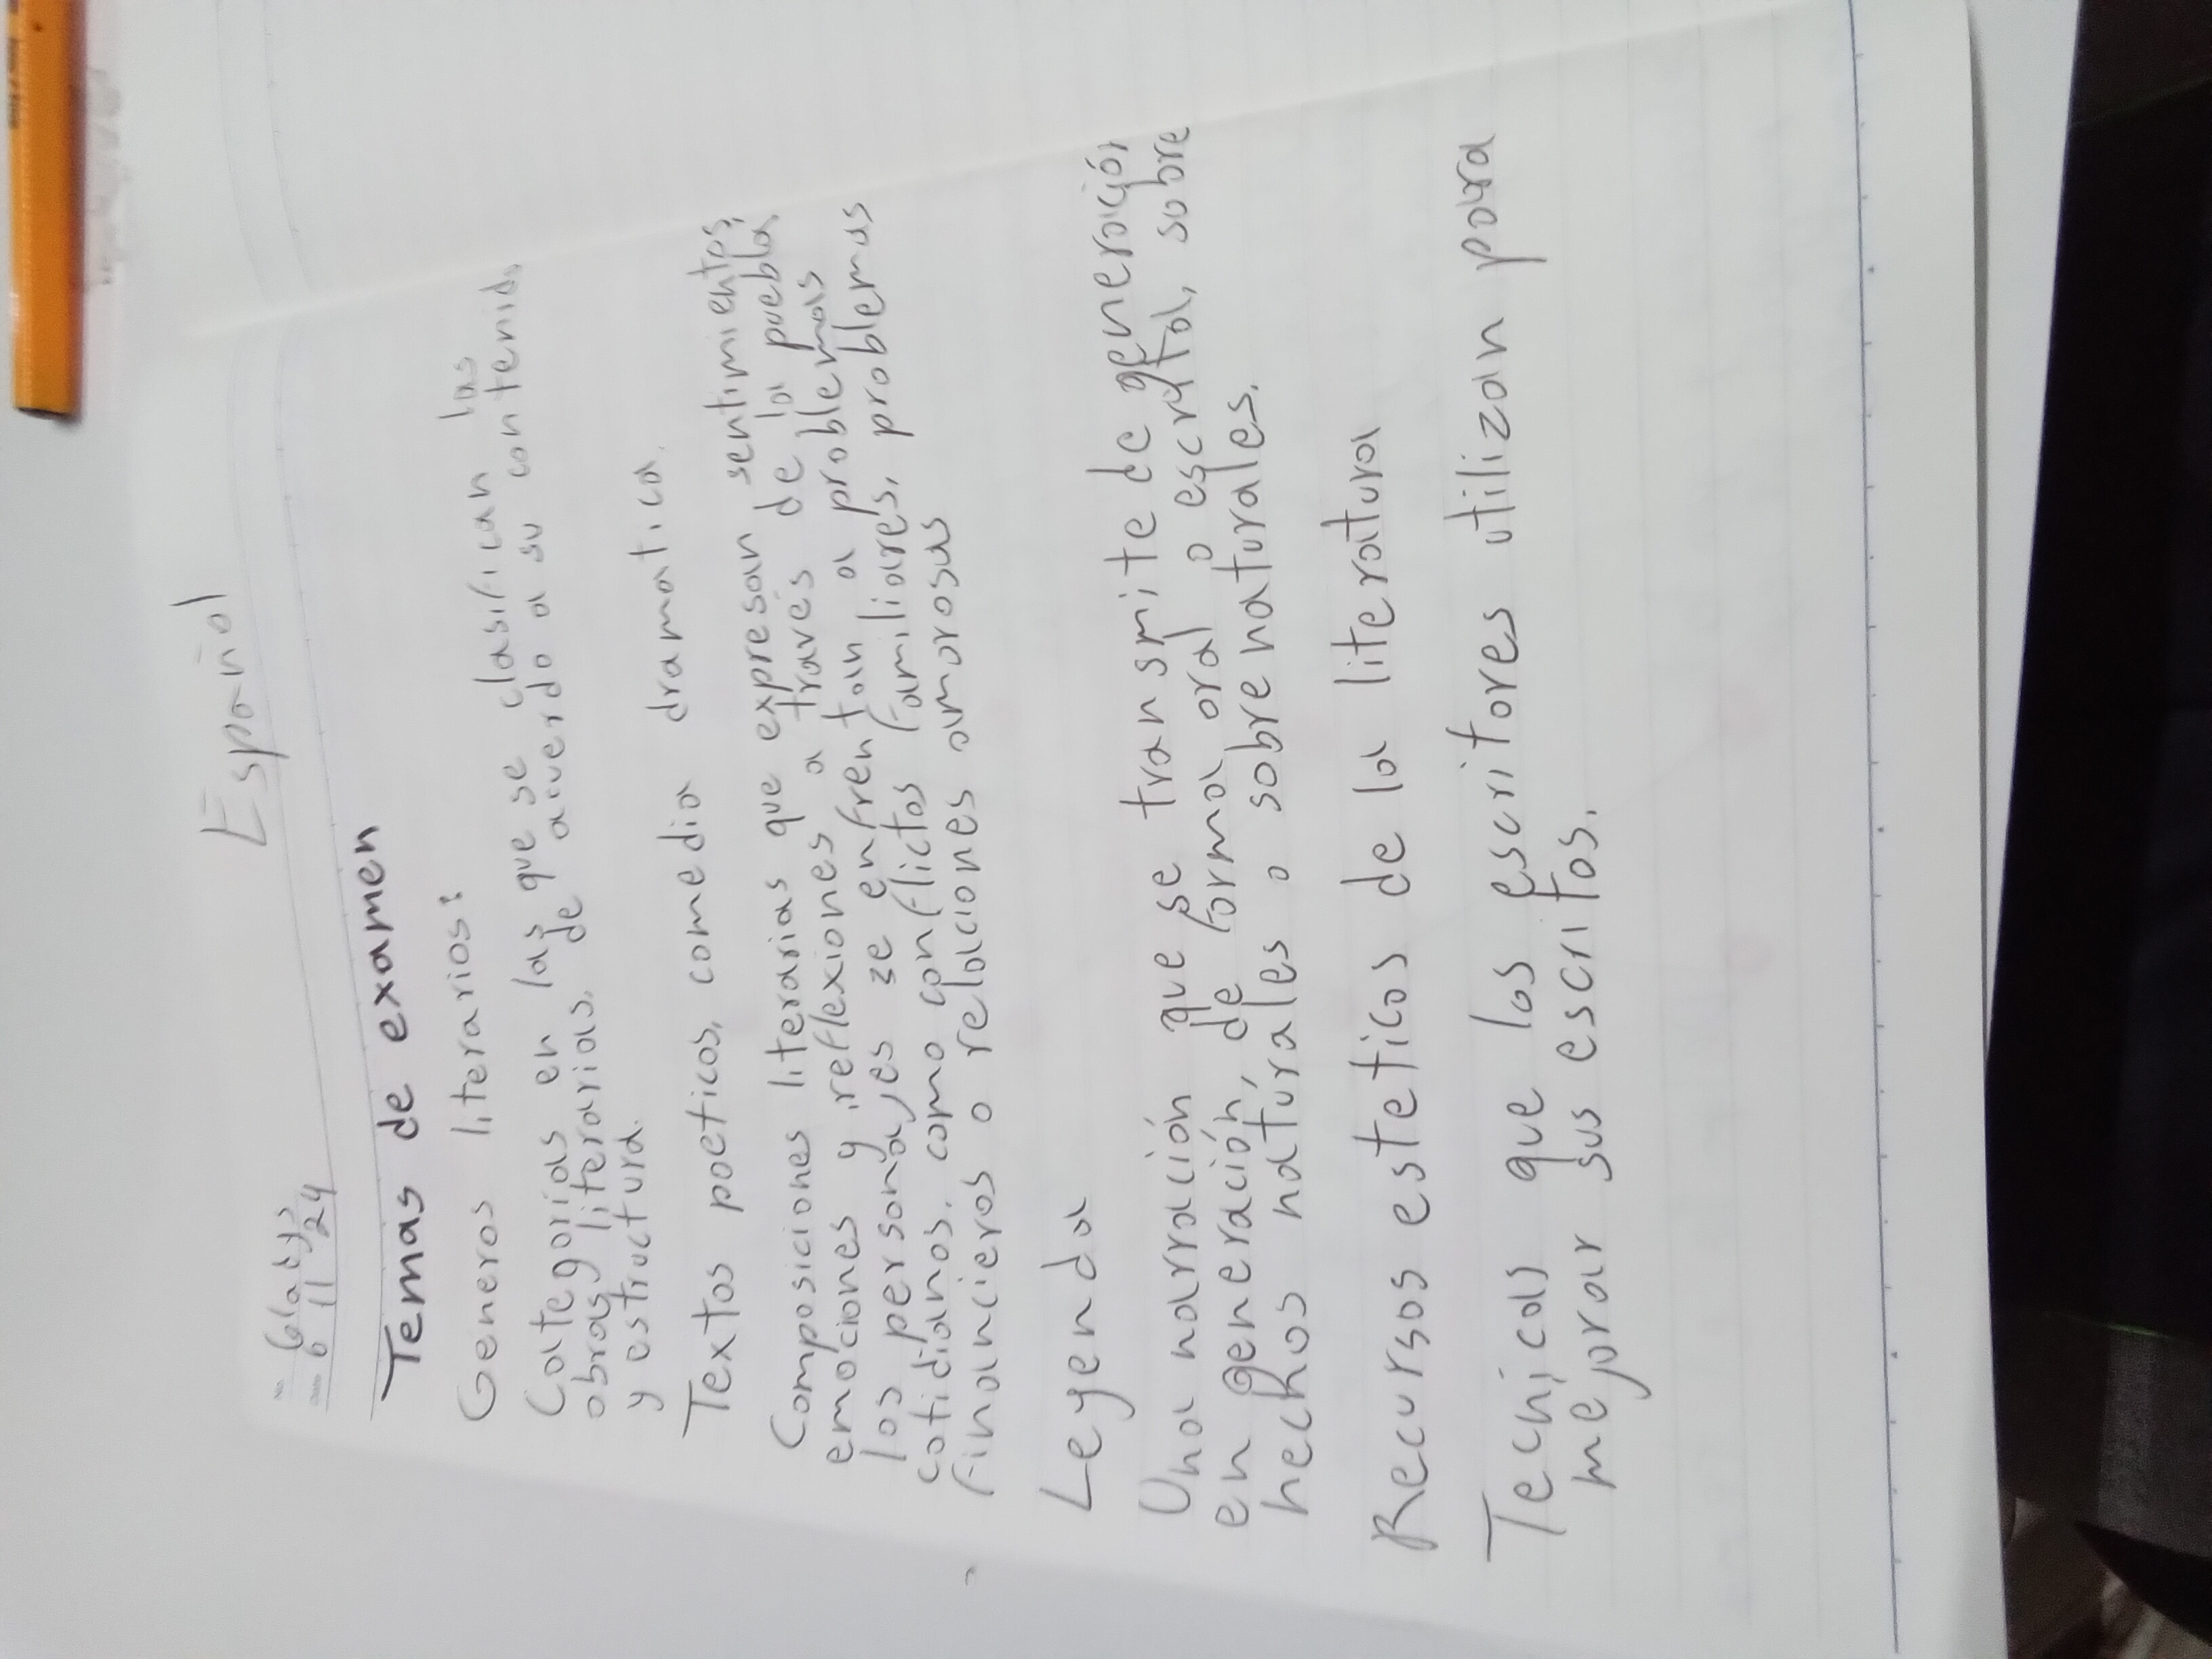 Español
6 11 24
Temas de examen
Generos literarios:
Categorias en las que se clasifican las
obras literarias, de acuerdo a su contenido
y estructura.
Textos poeticos, comedia dramatica.
Composiciones literarias que expresan sentimientos,
emociones y reflexiones a través de la puebla
los personajes se enfrentan a problemas
cotidianos, como conflictos familiares, problemas
financieros o relaciones amorosas
Leyenda
Una narración que se transmite de generación
en generación, de forma oral o escrita, sobre
hechos naturales o sobrenaturales.
Recursos esteticos de la literatura
Tecnicas que los escritores utilizan para
mejorar sus escritos.